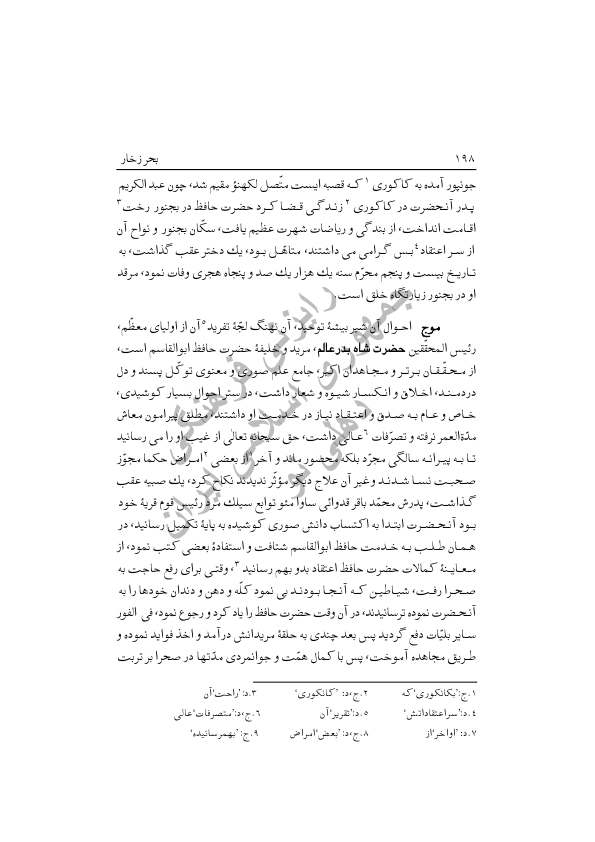 ۱۹۸ بحر زخار
جونپور آمده به کاکوری ۱ کـه قصبه ایست متّصل لکهنؤ مقیم شد، چون عبد الکریم
پـدر آنـحضرت در کاکوری ۲ زنـدگـی قـضـا کـرد حضرت حافظ در بجنور رخت ۳
اقـامت انداخت، از بندگی و ریاضات شهرت عظیم یافت، سکّان بجنور و نواح آن
از سـر اعتقاد ۴ بـس گـرامی می داشتند، متاهّـل بـود، یك دختر عقب گذاشت، به
تـاریـخ بیست و پنجم محرّم سنه یك هزار یك صد و پنجاه هجری وفات نمود، مرقد
او در بجنور زیارتگاه خلق است.
موج احـوال آن شیر بیشۀ توحید، آن نهنگ لجّۀ تفرید ۵ آن از اولیای معظّم،
رئیس المحقّقین حضرت شاه بدر عالم، مرید و خلیفۀ حضرت حافظ ابوالقاسم است،
از محـقّـقـان بـرتـر و مـجـاهدان اکبر، جامع علم صوری و معنوی توکّـل پسند و دل
دردمـنـد، اخـلاق و انـکسـار شیـوه و شعار داشت، در ستر احوال بسیار کوشیدی،
خـاص و عـام بـه صـدق و اعتـقـاد نیـاز در خـدمـت او داشتند، مطلق پیرامون معاش
مدّةالعمر نرفته و تصرّفات ۶ عـالی داشت، حق سبحانه تعالی از غیب او را می رسانید
تـا بـه پیـرانـه سالگی مجرّد بلکه محصور مانـد و آخر ۷ از بعضی ۸ امـراض حکما مجوّز
صحبـت نسـا شـدنـد و غیر آن علاج دیگر مؤثّر ندیدند نکاح کرد، یك صبیه عقب
گـذاشـت، پدرش محمّد باقر قدوائی ساوا مئو توابع سیلك مرد رئیس قوم قریۀ خود
بـود آنـحـضـرت ابتـدا بـه اکتساب دانش صوری کوشیده به پایۀ تکمیل رسانید، در
همـان طـلـب بـه خـدمت حافظ ابوالقاسم شتافت و استفادۀ بعضی کتب نمود، از
مـعـایـنۀ کمالات حضرت حافظ اعتقاد بدو بهم رسانید ۳، وقتـی برای رفع حاجت به
صـحـرا رفـت، شیـاطیـن کـه آنـجـا بـودنـد بی نمود کلّه و دهن و دندان خودها را به
آنحضرت نموده ترسانیدند، در آن وقت حضرت حافظ را یاد کرد و رجوع نمود، فی الفور
سـایر بلیّات دفع گردید پس بعد چندی به حلقۀ مریدانش درآمد و اخذ فواید نموده و
طـریـق مجاهده آموخت، پس با کمال همّت و جوانمردی مدّتها در صحرا بر تربت
۱.ج: ’بکانکوری‘ که ۲.ج،د: ’کانکوری‘ ۳.د: ’راحت‘ آن
۴.د: ’سراعتقاداتش‘ ۵.د: ’تقریر‘ آن ۶.ج،د: ’متصرفات‘ عالی
۷.د: ’اواخر‘ از ۸.ج،د: ’بعض‘ امراض ۹.ج: ’بهمرسانیده‘